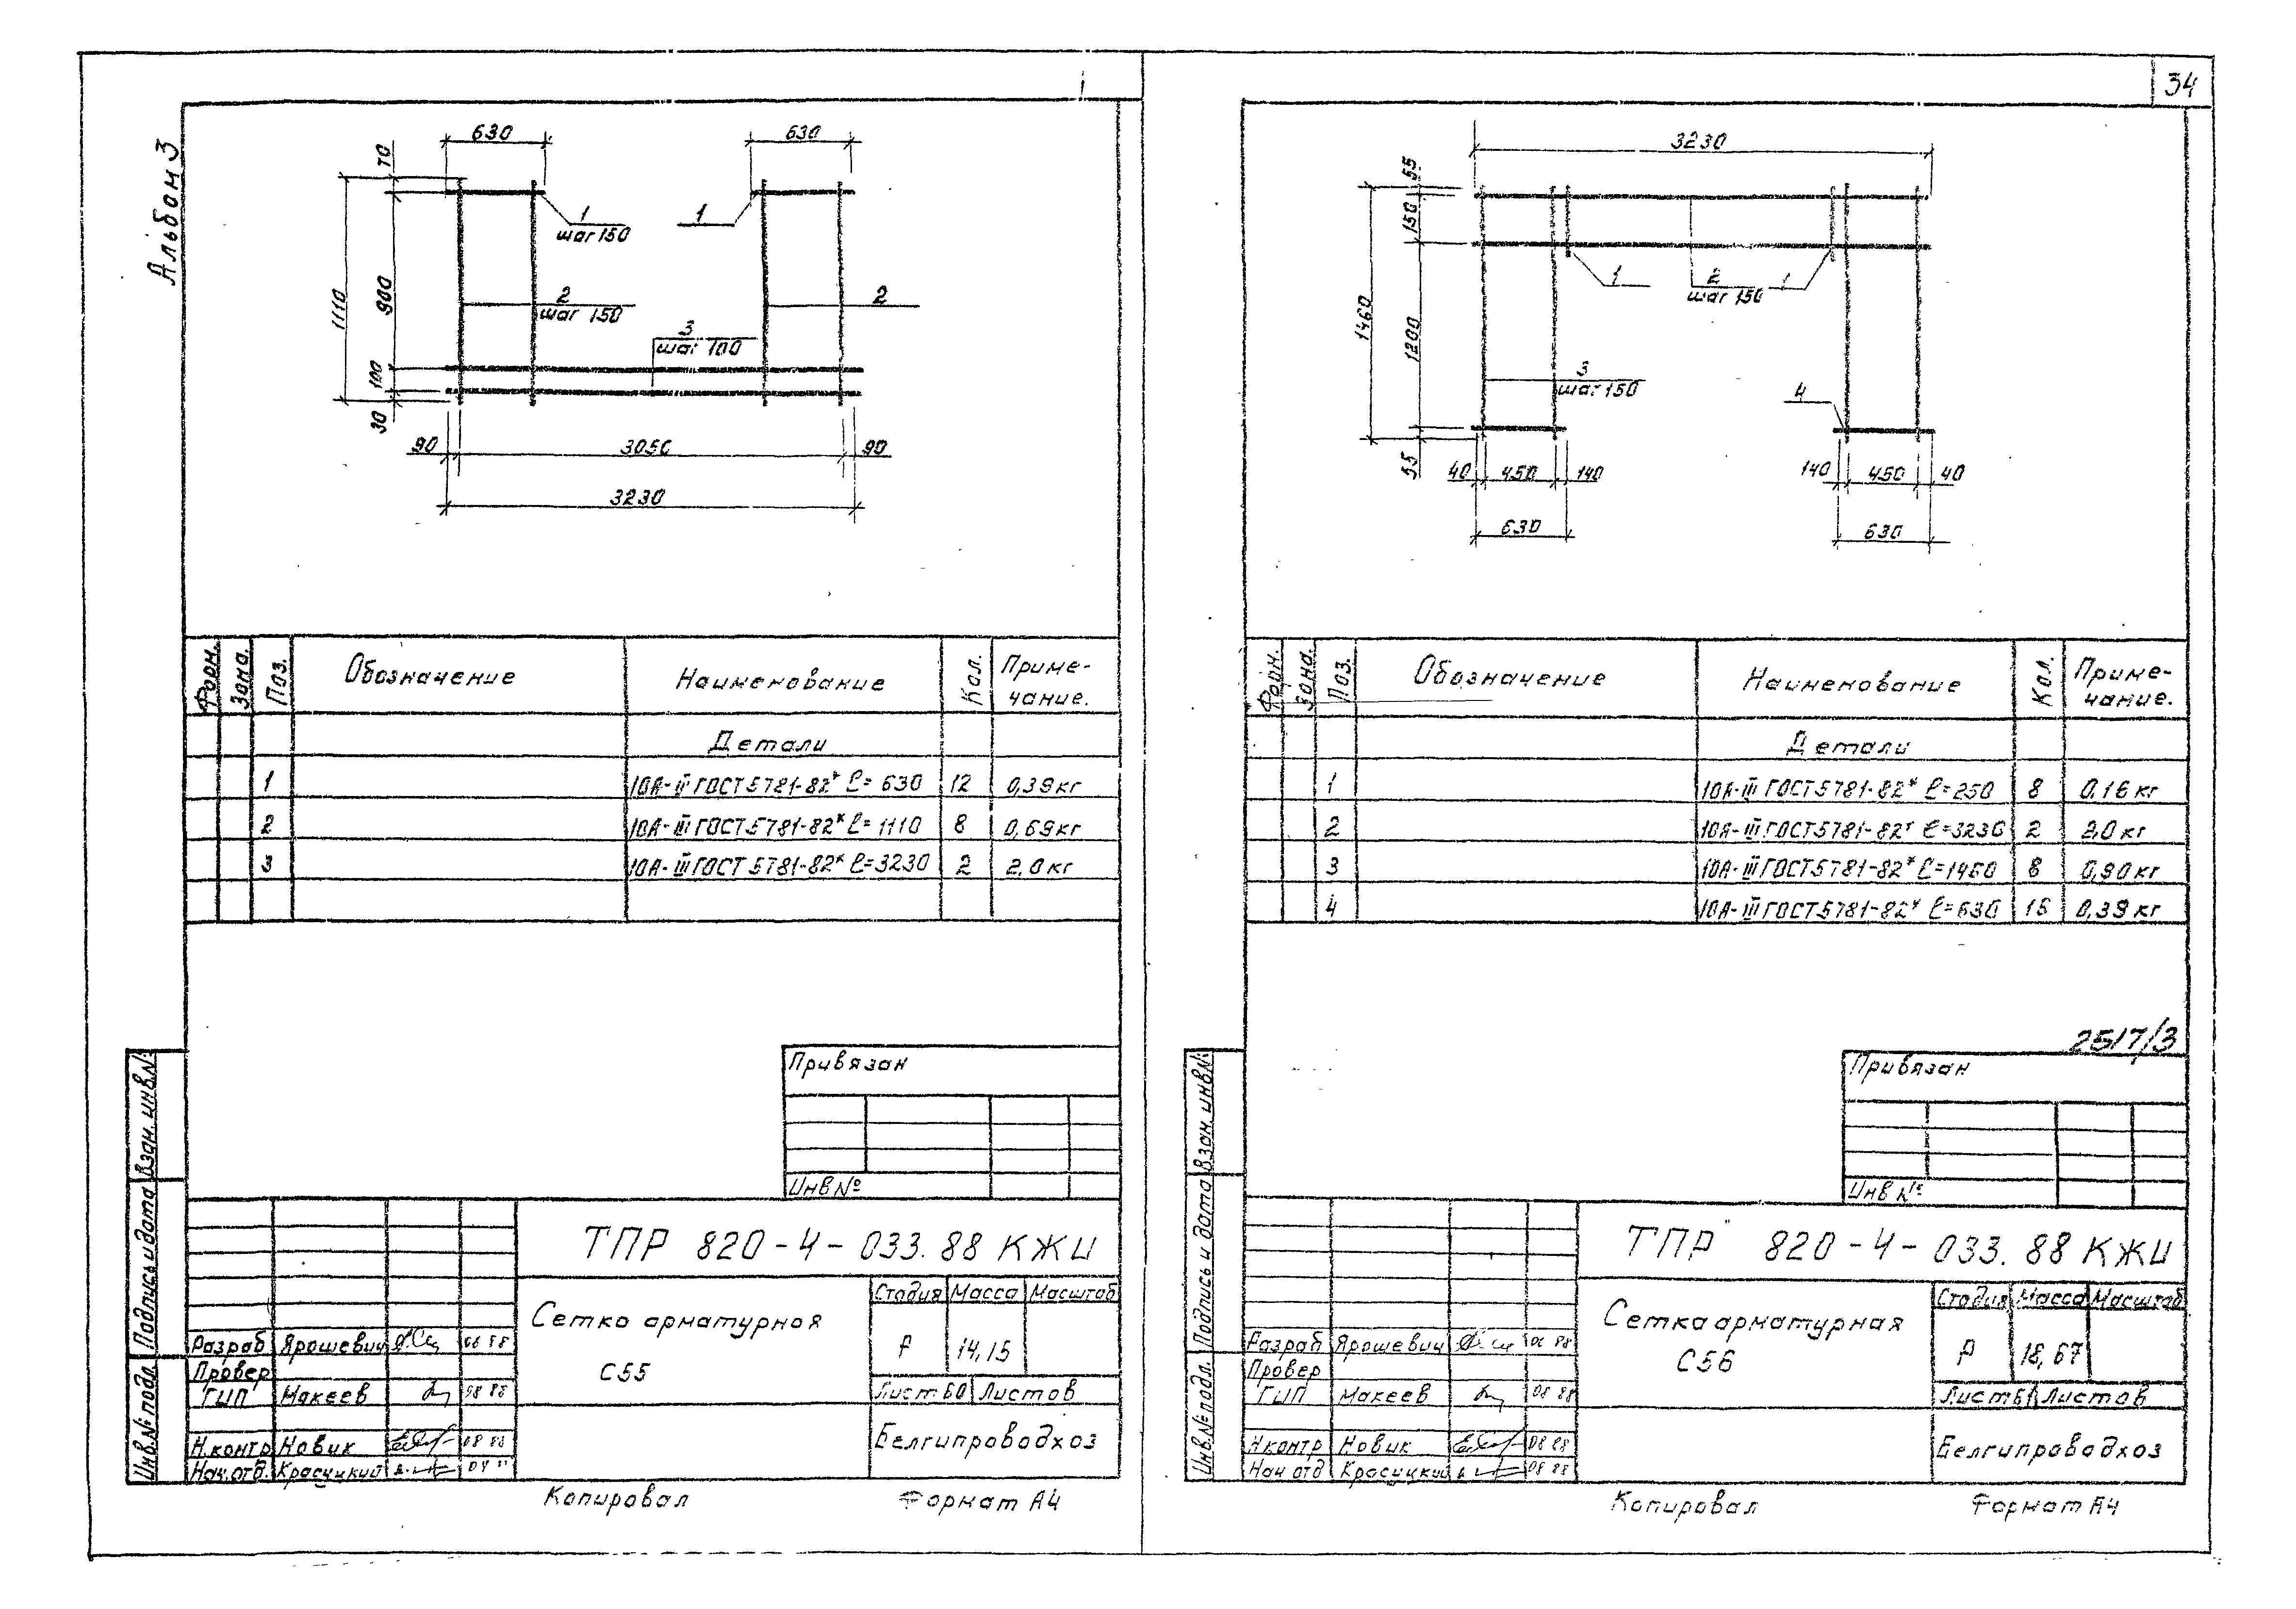 34
Альбом 3
630
630
70
1110
900
100
30
1
шаг 150
1
2
шаг 150
2
3
шаг 100
90
3050
90
3230
Форм.
Зона.
Поз.
Обозначение
Наименование
Кол.
Приме-
чание.
Детали
1 10А-III ГОСТ 5781-82* ℓ= 630 12 0,39кг
2 10А-III ГОСТ 5781-82* ℓ= 1110 8 0,69кг
3 10А-III ГОСТ 5781-82* ℓ=3230 2 2,0кг
Привязан
Инв №
Взам. инв.№
Подпись и дата
Инв.№ подл.
ТПР 820-4-033.88 КЖИ
Сетка арматурная
С55
Стадия Масса Масштаб
Р 14,15
Лист 60 Листов
Белгипроводхоз
Разраб Ярошевич 06 88
Провер
ГИП Макеев 08 88
Н.контр Новик 08 88
Нач.отд. Красуцкий
Копировал Формат А4
3230
55
150
1460
1200
55
1
2
шаг 150
1
3
шаг 150
4
40 450 140
140 450 40
630
630
Форм.
Зона.
Поз.
Обозначение
Наименование
Кол.
Приме-
чание.
Детали
1 10А-III ГОСТ 5781-82* ℓ=250 8 0,16кг
2 10А-III ГОСТ 5781-82* ℓ=3230 2 2,0кг
3 10А-III ГОСТ 5781-82* ℓ=1460 8 0,90кг
4 10А-III ГОСТ 5781-82* ℓ=630 15 0,39кг
2517/3
Привязан
Инв №
Взам. инв.№
Подпись и дата
Инв.№ подл.
ТПР 820-4-033.88 КЖИ
Сетка арматурная
С56
Стадия Масса Масштаб
Р 18,67
Лист 61 Листов
Белгипроводхоз
Разраб Ярошевич 06 88
Провер
ГИП Макеев 08 88
Н.контр Новик 08 88
Нач отд Красуцкий 08 88
Копировал Формат А4